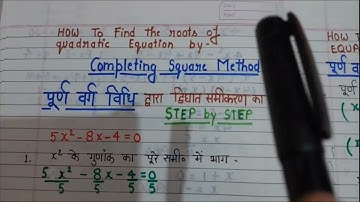 HOW To Find the roots of
quadratic Equation by-
Completing Square Method
पूर्ण वर्ग विधि द्वारा द्विघात समीकरण का
STEP by STEP
5x²-8x-4=0
1. x² के गुणांक का पूरे समी० में भाग-
5x²/5 - 8x/5 - 4/5 = 0/5
HOW T
EQUA
पूर्ण व